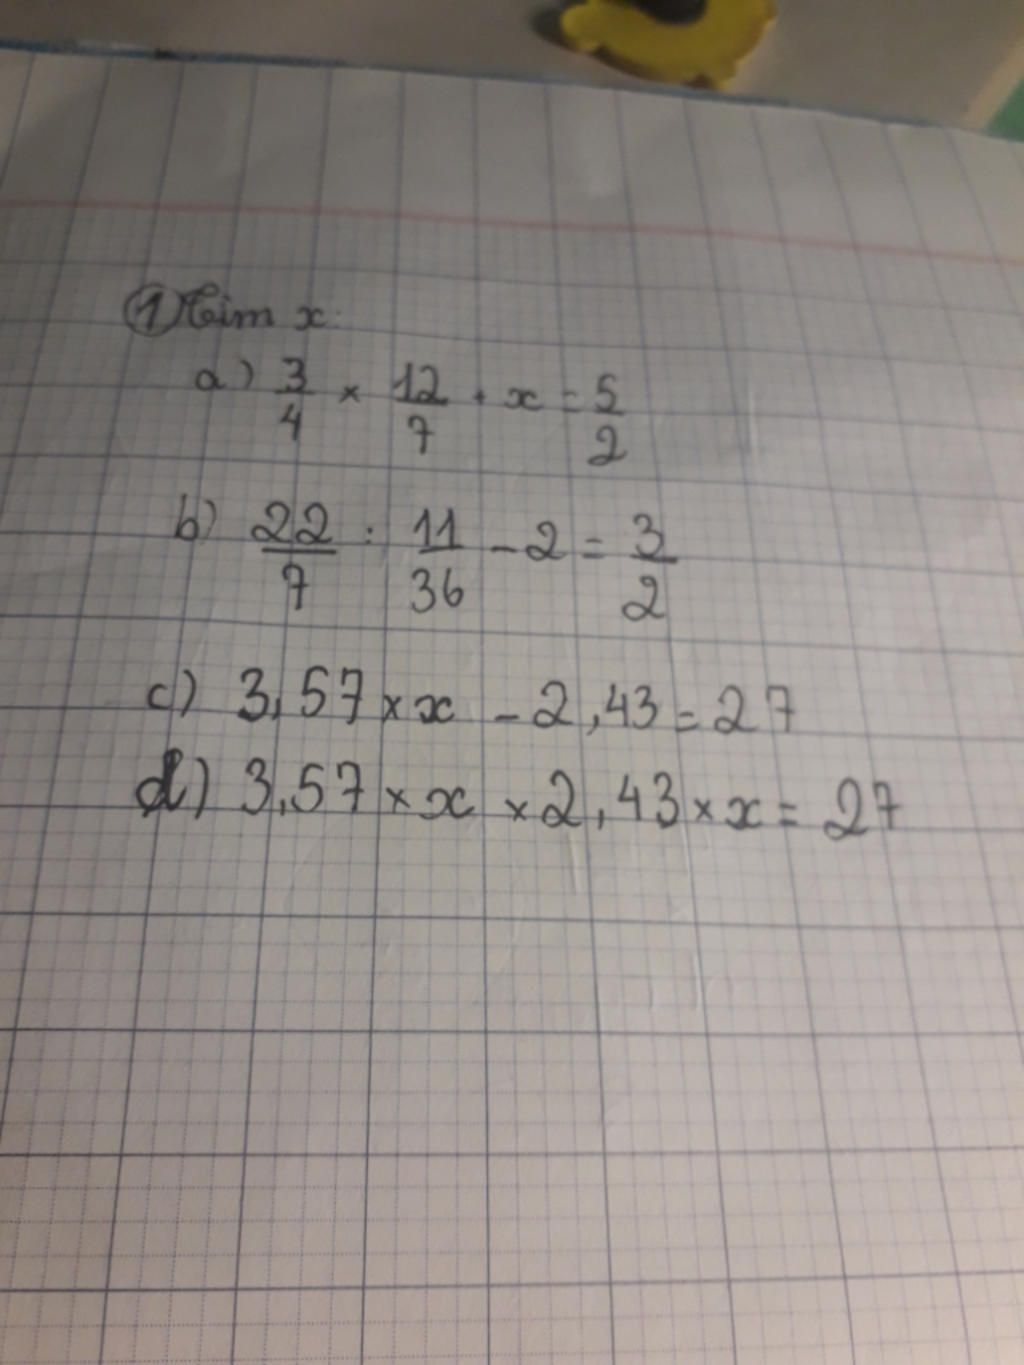 ① Tìm x:
a) 3/4 × 12/7 + x = 5/2
b) 22/7 : 11/36 - 2 = 3/2
c) 3,57 × x - 2,43 = 27
d) 3,57 × x × 2,43 × x = 27